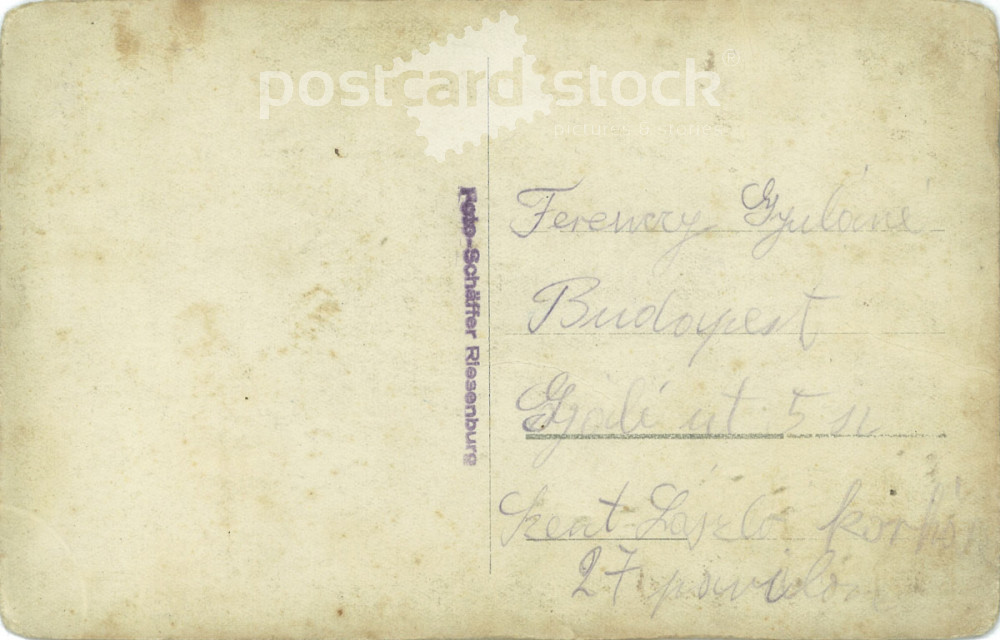 postcard stock®
pictures & stories
Foto-Schäffer Riesenburg
Ferenczy Gyuláné
Budapest
Gyáli út 5 sz
Szent-László kórház
27 pavilon